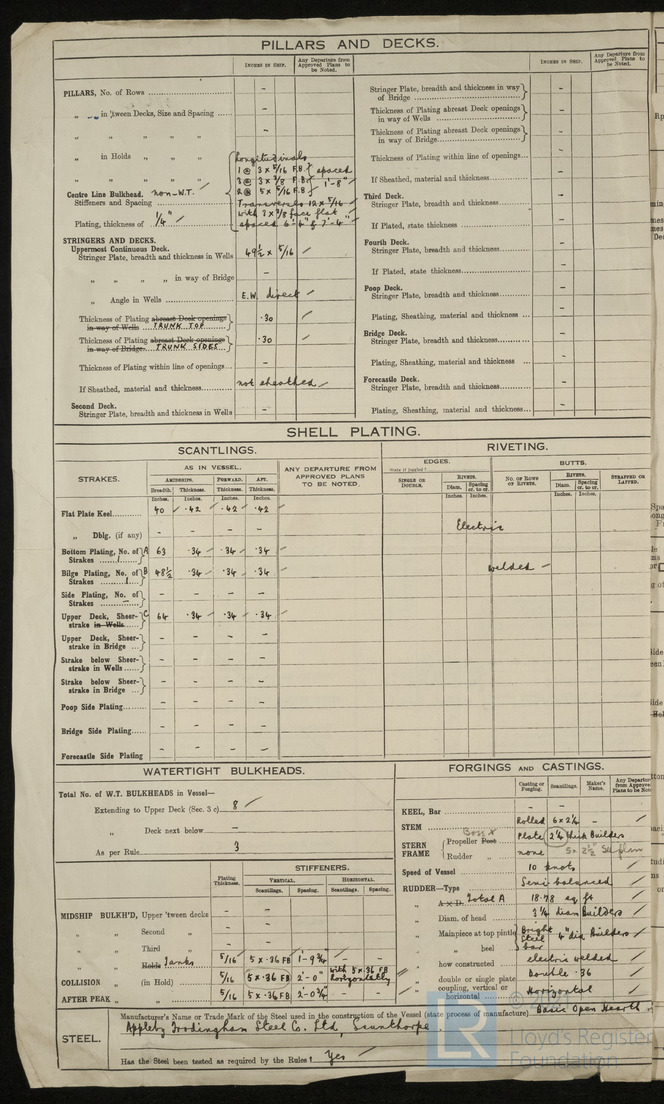 PILLARS AND DECKS.
INCHES IN SHIP. Any Departure from Approved Plans to be Noted.
PILLARS, No. of Rows -
„ in 'tween Decks, Size and Spacing -
„ „ „ „ -
„ in Holds „ „ Longitudinals
1 @ 3 x 5/16 F.B. spaced
3 @ 3 x 3/8 F.B. 1'-8"
Centre Line Bulkhead. non-W.T. 2 @ 5 x 5/16 F.B.
Stiffeners and Spacing Transversals 12 x 5/16
with 3 x 3/8 face flat
Plating, thickness of 1/4" spaced 6'-4" & 7'-4"
STRINGERS AND DECKS.
Uppermost Continuous Deck.
Stringer Plate, breadth and thickness in Wells 49½ x 5/16
„ „ „ „ in way of Bridge -
„ Angle in Wells E.W. direct
Thickness of Plating abreast Deck openings in way of Wells TRUNK TOP .30
Thickness of Plating abreast Deck openings in way of Bridge TRUNK SIDES .30
Thickness of Plating within line of openings... -
If Sheathed, material and thickness not sheathed
Second Deck.
Stringer Plate, breadth and thickness in Wells -
INCHES IN SHIP. Any Departure from Approved Plans to be Noted.
Stringer Plate, breadth and thickness in way of Bridge -
Thickness of Plating abreast Deck openings in way of Wells -
Thickness of Plating abreast Deck openings in way of Bridge -
Thickness of Plating within line of openings... -
If Sheathed, material and thickness -
Third Deck.
Stringer Plate, breadth and thickness -
If Plated, state thickness -
Fourth Deck.
Stringer Plate, breadth and thickness -
If Plated, state thickness -
Poop Deck.
Stringer Plate, breadth and thickness -
Plating, Sheathing, material and thickness ... -
Bridge Deck.
Stringer Plate, breadth and thickness -
Plating, Sheathing, material and thickness ... -
Forecastle Deck.
Stringer Plate, breadth and thickness -
Plating, Sheathing, material and thickness... -
SHELL PLATING.
SCANTLINGS. RIVETING.
STRAKES. AS IN VESSEL. ANY DEPARTURE FROM APPROVED PLANS TO BE NOTED. EDGES. BUTTS.
AMIDSHIPS. FORWARD. AFT. State if joggled? SINGLE OR DOUBLE. RIVETS. NO. OF ROWS OF RIVETS. RIVETS. STRAPPED OR LAPPED.
Breadth. Thickness. Thickness. Thickness. Diam. Spacing cr. to cr. Diam. Spacing cr. to cr.
Inches. Inches. Inches. Inches. Inches. Inches. Inches. Inches.
Flat Plate Keel 40 .42 .42 .42
„ Dblg. (if any) - - - - Electric
Bottom Plating, No. of Strakes 1 A 63 .34 .34 .34
Bilge Plating, No. of Strakes 1 B 48½ .34 .34 .34 welded
Side Plating, No. of Strakes - - - - -
Upper Deck, Sheer-strake in Wells C 64 .34 .34 .34
Upper Deck, Sheer-strake in Bridge - - - -
Strake below Sheer-strake in Wells - - - -
Strake below Sheer-strake in Bridge - - - -
Poop Side Plating - - - -
Bridge Side Plating - - - -
Forecastle Side Plating - - - -
WATERTIGHT BULKHEADS.
Total No. of W.T. BULKHEADS in Vessel—
Extending to Upper Deck (Sec. 3 c) 8
„ Deck next below -
As per Rule 3
Plating Thickness. STIFFENERS.
VERTICAL. HORIZONTAL.
Scantlings. Spacing. Scantlings. Spacing.
MIDSHIP BULKH'D, Upper 'tween decks - -
„ „ Second „ - -
„ „ Third „ - -
„ „ Holds Tanks 5/16 5 x .36 FB 1'-9¾" - -
COLLISION „ (in Hold) 5/16 5 x .36 FB 2'-0" with 5 x .36 FB horizontally
AFTER PEAK „ „ 5/16 5 x .36 FB 2'-0¾" - -
FORGINGS AND CASTINGS.
Casting or Forging. Scantlings. Maker's Name. Any Departure from Approved Plans to be Noted
KEEL, Bar - -
STEM Rolled 6 x 2¼ -
STERN FRAME Propeller Post Boss x Plate 2¼ thick Builders
Rudder „ none 5 x 2½"
Speed of Vessel 10 knots
RUDDER—Type Semi balanced
„ A x D. Total A 18.78 sq ft
„ Diam. of head 3¼ diam Builders
„ Mainpiece at top pintle Bright Steel bar 4" dia Builders
„ „ heel
„ how constructed electric welded
„ double or single plate Double .36
„ coupling, vertical or horizontal Horizontal
STEEL. Manufacturer's Name or Trade Mark of the Steel used in the construction of the Vessel (state process of manufacture) Basic Open Hearth
Appleby Frodingham Steel Co. Ltd, Scunthorpe
Has the Steel been tested as required by the Rules? Yes
LR
Lloyd's Register
Foundation